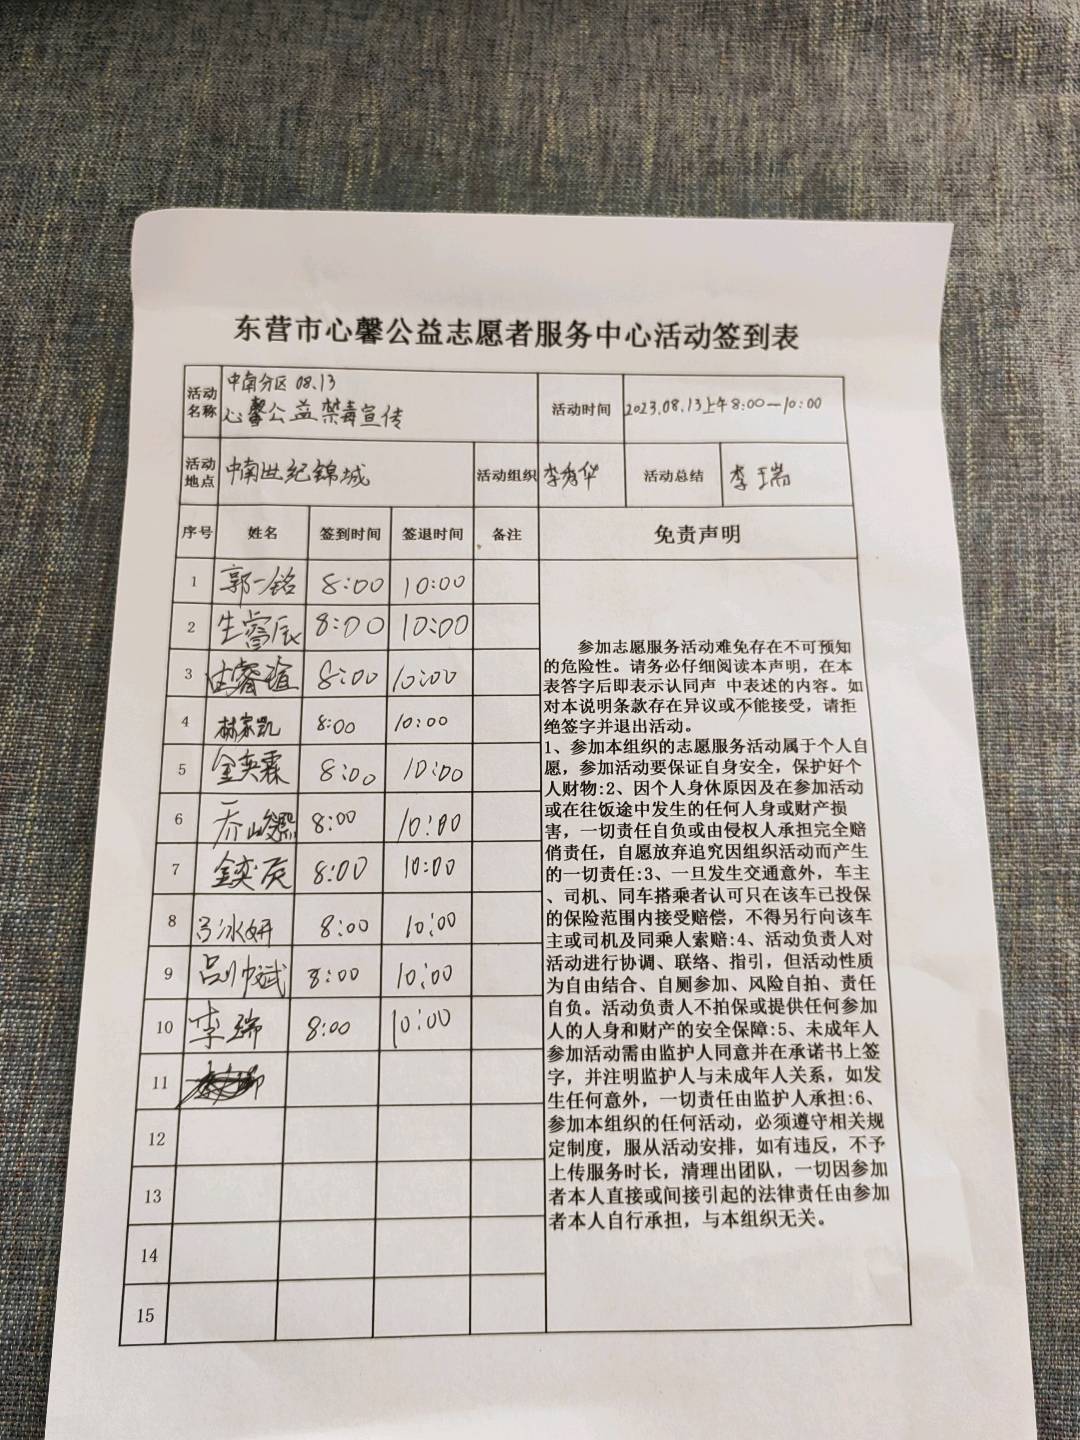 东营市心馨公益志愿者服务中心活动签到表
活动名称 中南分区 08.13 心馨公益 禁毒宣传 活动时间 2023.08.13上午8:00—10:00
活动地点 中南世纪锦城 活动组织 李秀华 活动总结 李瑞
序号 姓名 签到时间 签退时间 备注 免责声明
1 郭一铭 8:00 10:00
2 生睿辰 8:00 10:00
3 睿瑄 8:00 10:00
4 林家凯 8:00 10:00
5 金奕霖 8:00 10:00
6 乔峻熙 8:00 10:00
7 金奕辰 8:00 10:00
8 吕冰妍 8:00 10:00
9 吕帅斌 8:00 10:00
10 李瑞 8:00 10:00
11
12
13
14
15
参加志愿服务活动难免存在不可预知
的危险性。请务必仔细阅读本声明，在本
表答字后即表示认同声 中表述的内容。如
对本说明条款存在异议或不能接受，请拒
绝签字并退出活动。
1、参加本组织的志愿服务活动属于个人自
愿，参加活动要保证自身安全，保护好个
人财物:2、因个人身休原因及在参加活动
或在往饭途中发生的任何人身或财产损
害，一切责任自负或由侵权人承担完全赔
俏责任，自愿放弃追究因组织活动而产生
的一切责任:3、一旦发生交通意外，车主
、司机、同车搭乘者认可只在该车已投保
的保险范围内接受赔偿，不得另行向该车
主或司机及同乘人索赔:4、活动负责人对
活动进行协调、联络、指引，但活动性质
为自由结合、自厕参加、风险自拍、责任
自负。活动负责人不拍保或提供任何参加
人的人身和财产的安全保障:5、未成年人
参加活动需由监护人同意并在承诺书上签
字，并注明监护人与未成年人关系，如发
生任何意外，一切责任由监护人承担:6、
参加本组织的任何活动，必须遵守相关规
定制度，服从活动安排，如有违反，不予
上传服务时长，清理出团队，一切因参加
者本人直接或间接引起的法律责任由参加
者本人自行承担，与本组织无关。